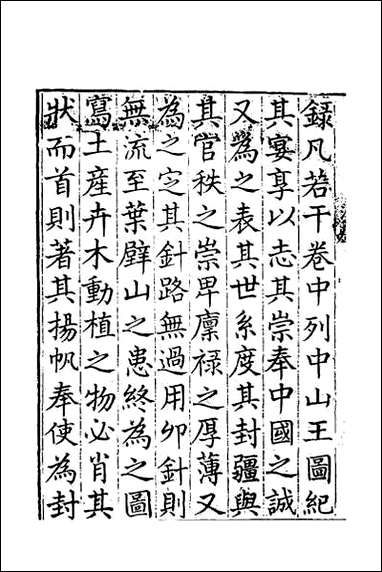 錄凡若干卷中列中山王圖紀
其宴享以志其崇奉中國之誠
又為之表其世系度其封疆與
其官秩之崇卑廩祿之厚薄又
為之定其針路無過用卯針則
無流至葉壁山之患終為之圖
寫土產卉木動植之物必肖其
狀而首則著其揚帆奉使為封